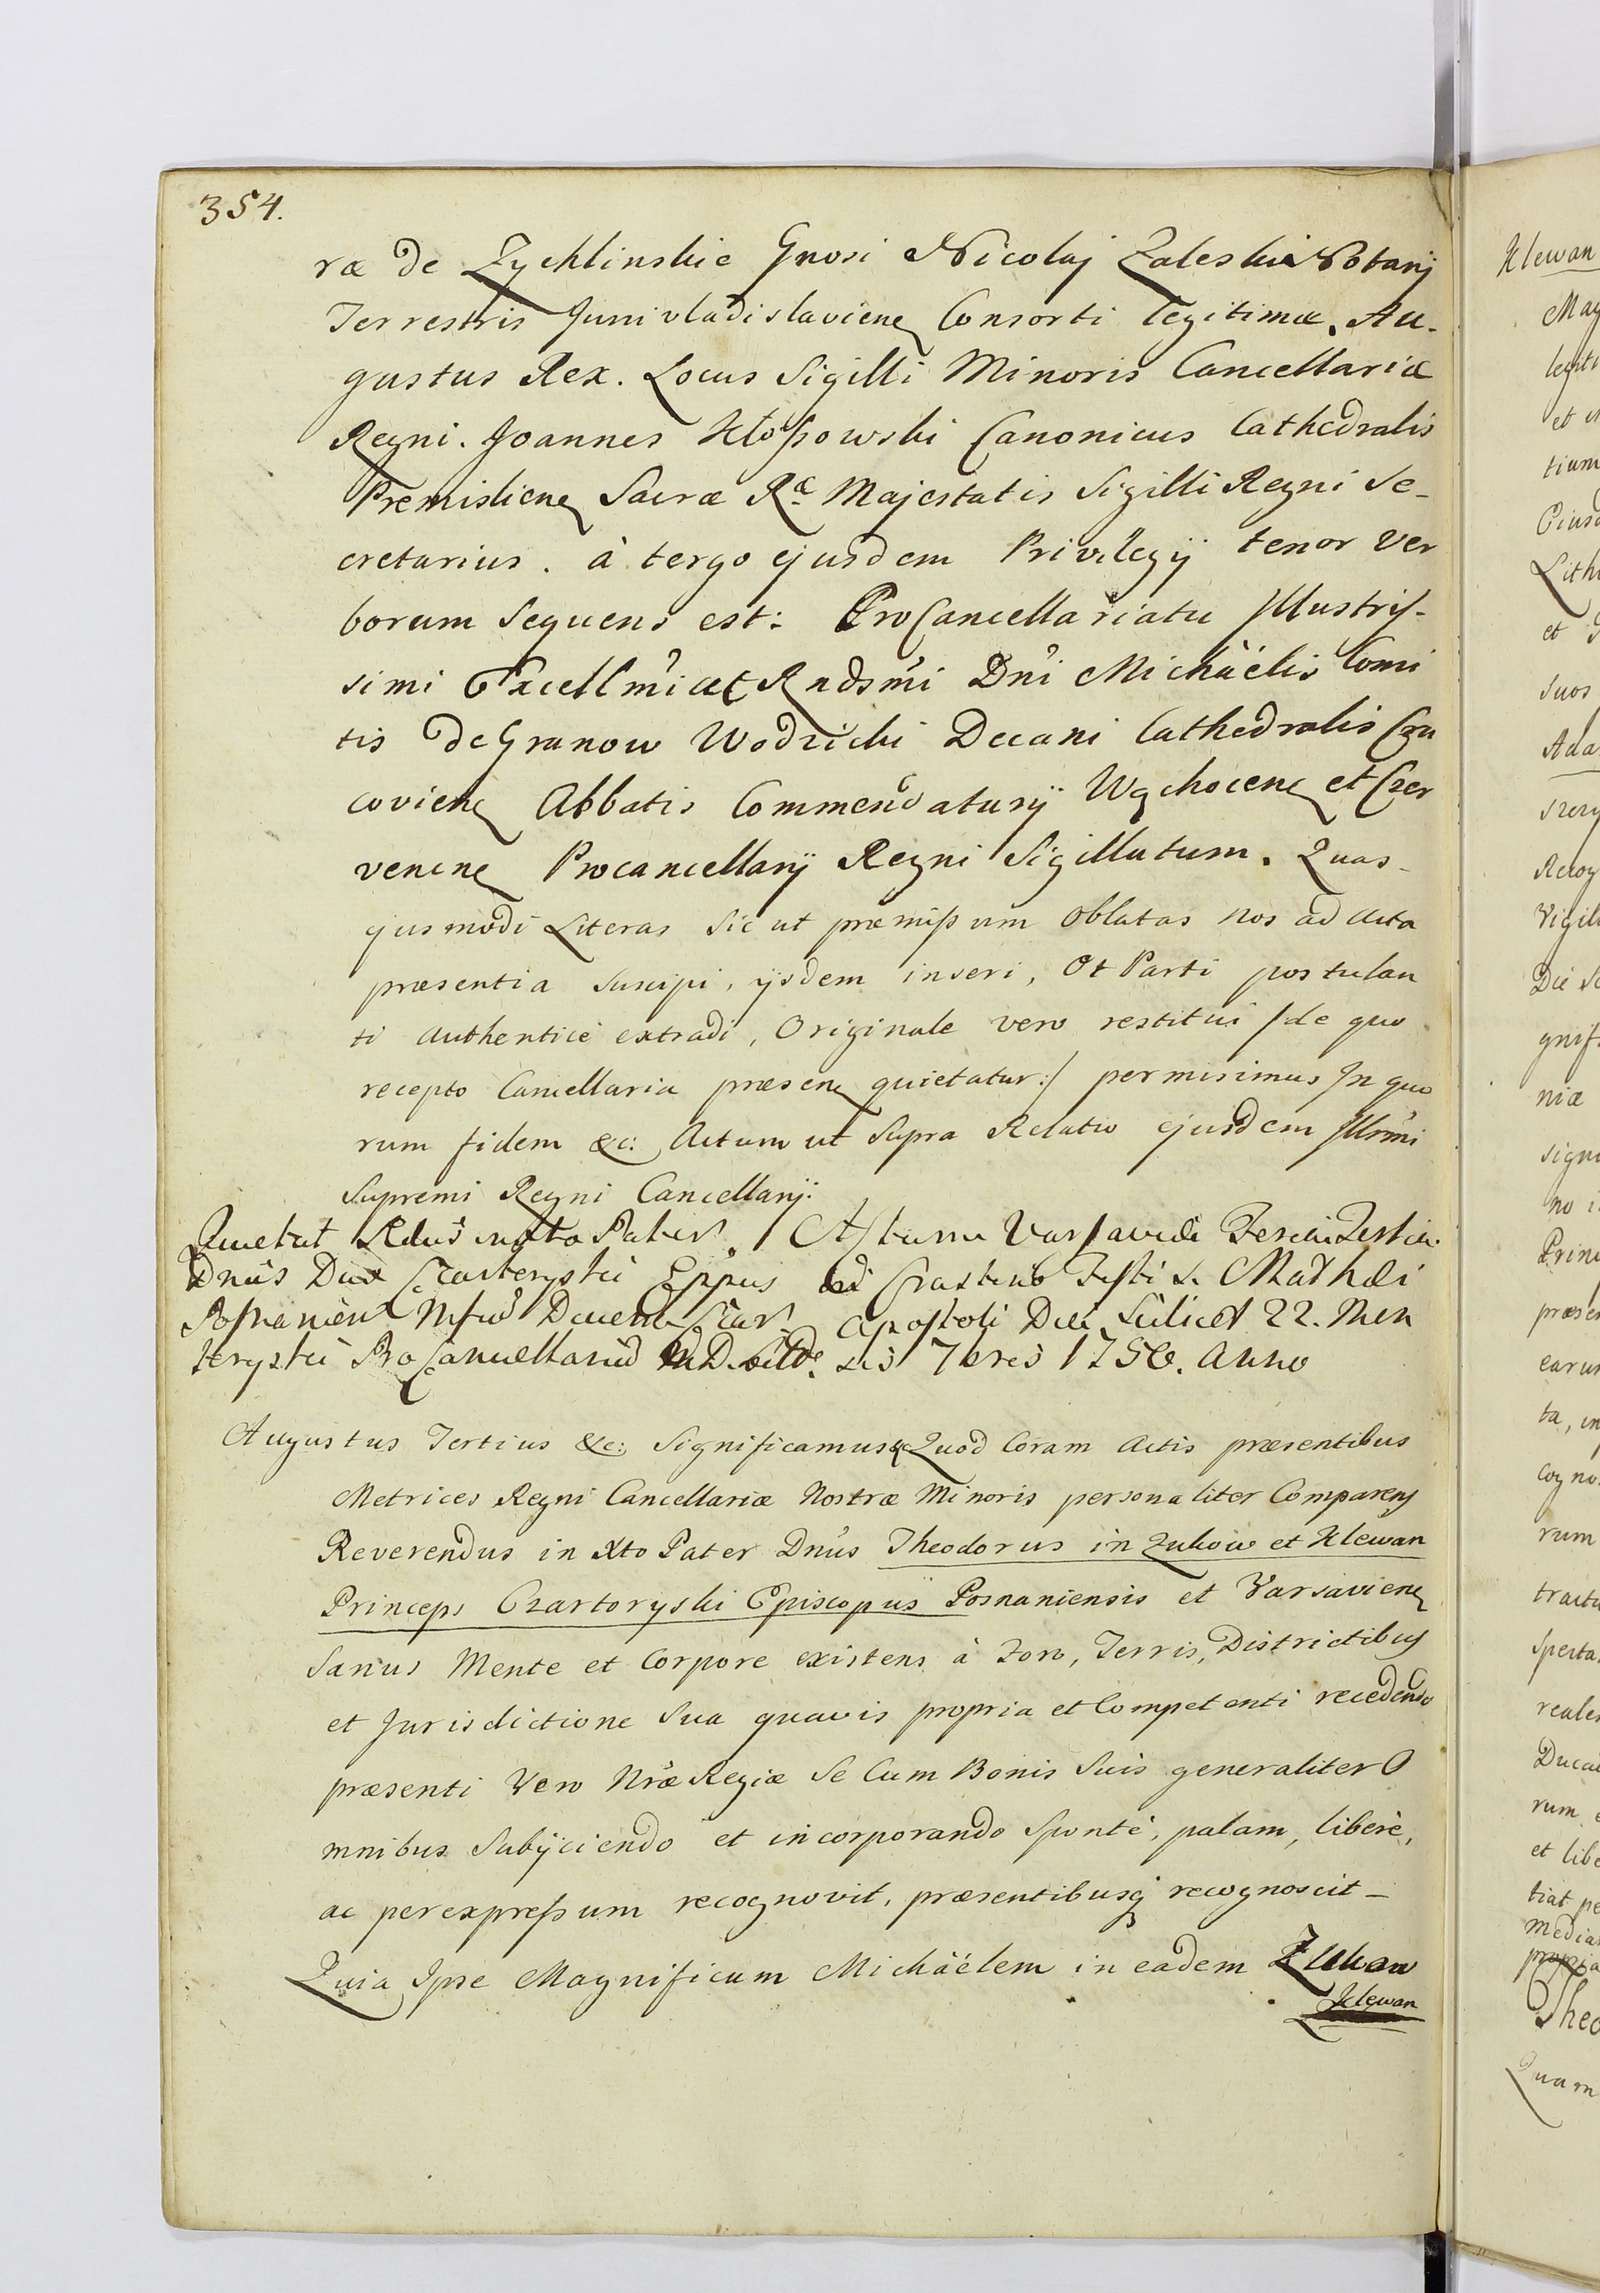 354.
ræ de Zychlinskie Gnosi Nicolaj Zaleski Notarij
Terrestris Junivladislaviene Consorti legitimæ. Au-
gustus Rex. Locus Sigilli Minoris Cancellariæ
Regni. Joannes Kłoßowski Canonicus Cathedralis
Premisliene Sacræ Ræ Majestatis Sigilli Regni Se-
cretarius. à tergo ejusdem Privilegij tenor ver
borum Sequens est: ProCancellariatu Illustris-
simi Excellmi et Rndsmi Dni Michäelis Comi
tis de Granow Wodzicki Decani Cathedralis Cra
coviene Abbatis Commendatarij Wąchocene et Czer
venene Procancellarij Regni Sigillatum. Quas-
ejusmodi Literas Sic ut præmißum Oblatas nos ad Acta
præsentia Suscipi, ijsdem inseri, Et Parti postulan
ti authenticè extradi, Originale vero restitui /de quo
recepto Cancellaria præsene quietatur:/ permisimus In quo
rum fidem &c: Actum ut Supra Relatio ejusdem Illrmi
Supremi Regni Cancellarij.
Quietat Rdus in xto Pater Actum Varsaviæ Feria Tertia
Dnus Dux Czartoryski Eppus ad Crastino Festi S. Mathæi
Posnanien Mfcum Ducem Czar Apostoli Die Scilicet 22. Men
toryski ProCancellarium M. D. Litt. sis 7bris 1756. Anno
Augustus Tertius &c: Significamus &c Quod Coram Actis præsentibus
Metrices Regni Cancellariæ Nostræ Minoris personaliter Comparens
Reverendus in Xto Pater Dnus Theodorus in Zukow et Klewan
Princeps Czartoryski Episcopus Posnaniensis et Varsaviene
Sanus Mente et Corpore existens à Foro, Terris, Districtibus
et Jurisdictione Sua quavis propria et Competenti recedendo
præsenti Vero Nræ Regiæ Se Cum Bonis Suis generaliter O
mnibus Subijciendo et incorporando Spontè, palam, liberè,
ac per expreßum recognovit, præsentibusq recognoscit-
Quia Ipse Magnificum Michäelem in eadem Zukow
Klewan